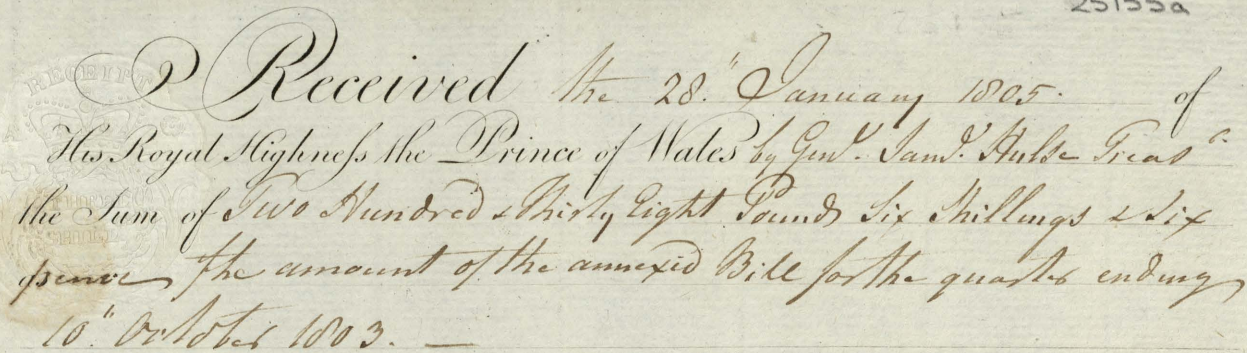 25155a
RECEIPT
Received the 28." January 1805. of
His Royal Highneſs the Prince of Wales by Genl. Saml. Hulse Treasr.
the Sum of Two Hundred & Thirty Eight Pounds Six Shillings & Six
pence the amount of the annexed Bill for the quarter ending
10." October 1803. —